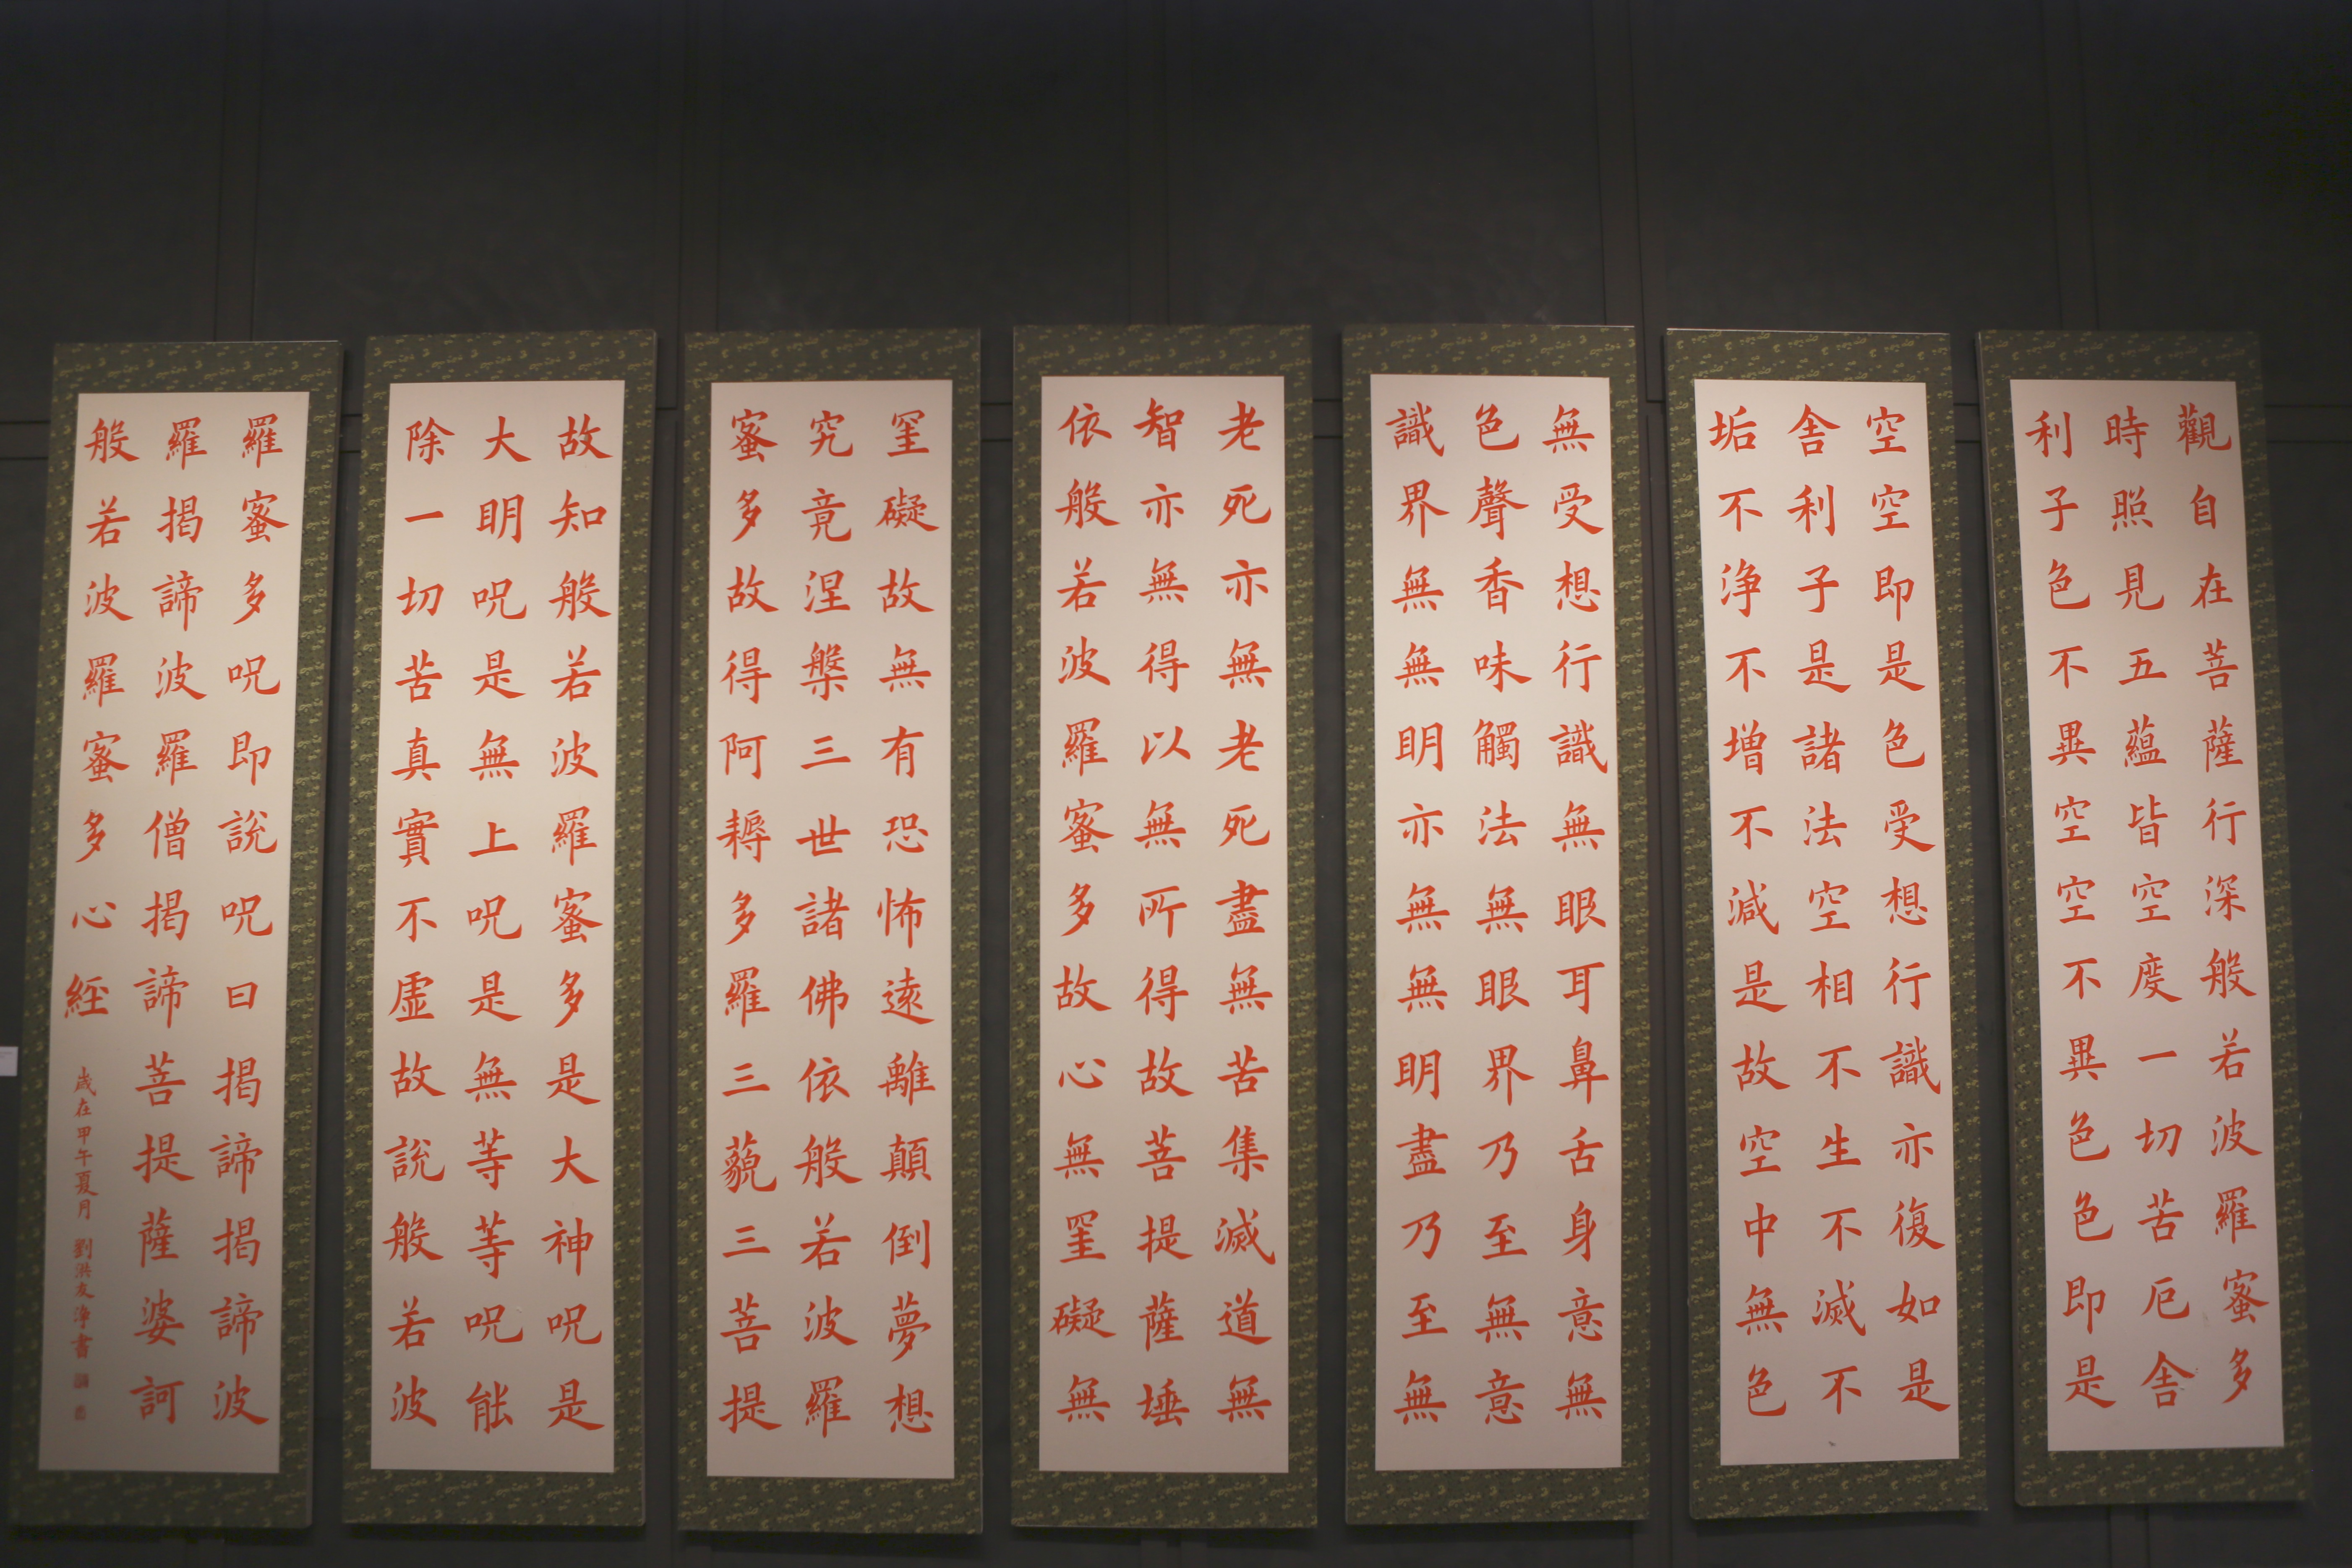 觀自在菩薩行深般若波羅蜜多
時照見五蘊皆空度一切苦厄舍
利子色不異空空不異色色即是
空空即是色受想行識亦復如是
舍利子是諸法空相不生不滅不
垢不浄不增不減是故空中無色
無受想行識無眼耳鼻舌身意無
色聲香味觸法無眼界乃至無意
識界無無明亦無無明盡乃至無
老死亦無老死盡無苦集滅道無
智亦無得以無所得故菩提薩埵
依般若波羅蜜多故心無罣礙無
罣礙故無有恐怖遠離顛倒夢想
究竟涅槃三世諸佛依般若波羅
蜜多故得阿耨多羅三藐三菩提
故知般若波羅蜜多是大神呪是
大明呪是無上呪是無等等呪能
除一切苦真實不虛故說般若波
羅蜜多呪即說呪曰揭諦揭諦波
羅揭諦波羅僧揭諦菩提薩婆訶
般若波羅蜜多心経
歲在甲午夏月 劉洪友浄書